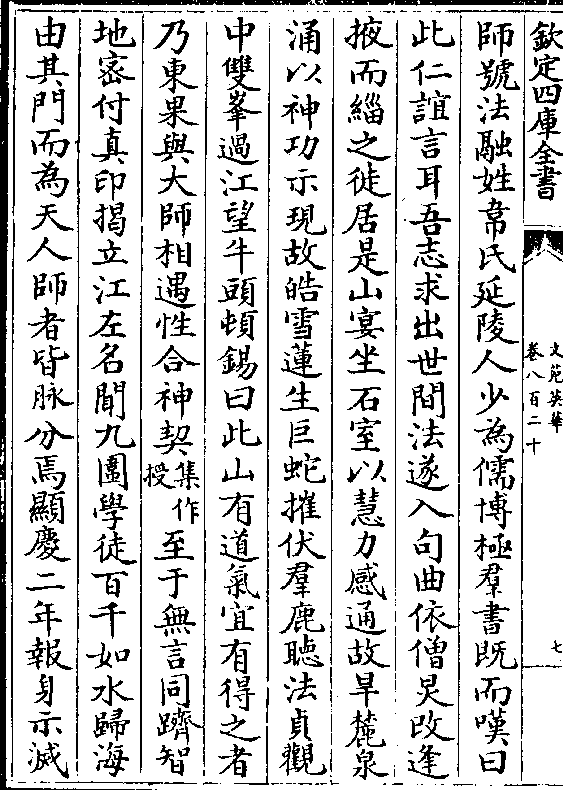 欽定四庫全書
文苑英華
卷八百二十
七
師號法融姓韋氏延陵人少為儒博極羣書既而嘆曰
此仁誼言耳吾志求出世間法遂入句曲依僧炅改逢
掖而緇之徒居是山宴坐石室以慧力感通故旱麓泉
涌以神功示現故皓雪蓮生巨蛇摧伏羣鹿聽法貞觀
中雙峯過江望牛頭頓錫曰此山有道氣宜有得之者
乃東果與大師相遇性合神契集作授至于無言同躋智
地密付真印揭立江左名聞九圍學徒百千如水歸海
由其門而為天人師者皆脉分焉顯慶二年報身示滅